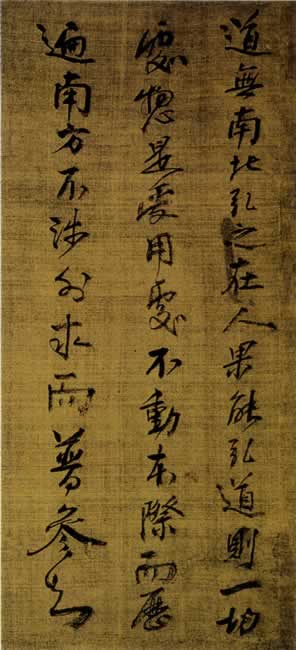 道無南北弘之在人果能弘道則一切
處惣是受用處不動本際而歷
遍南方不涉外求而普參知